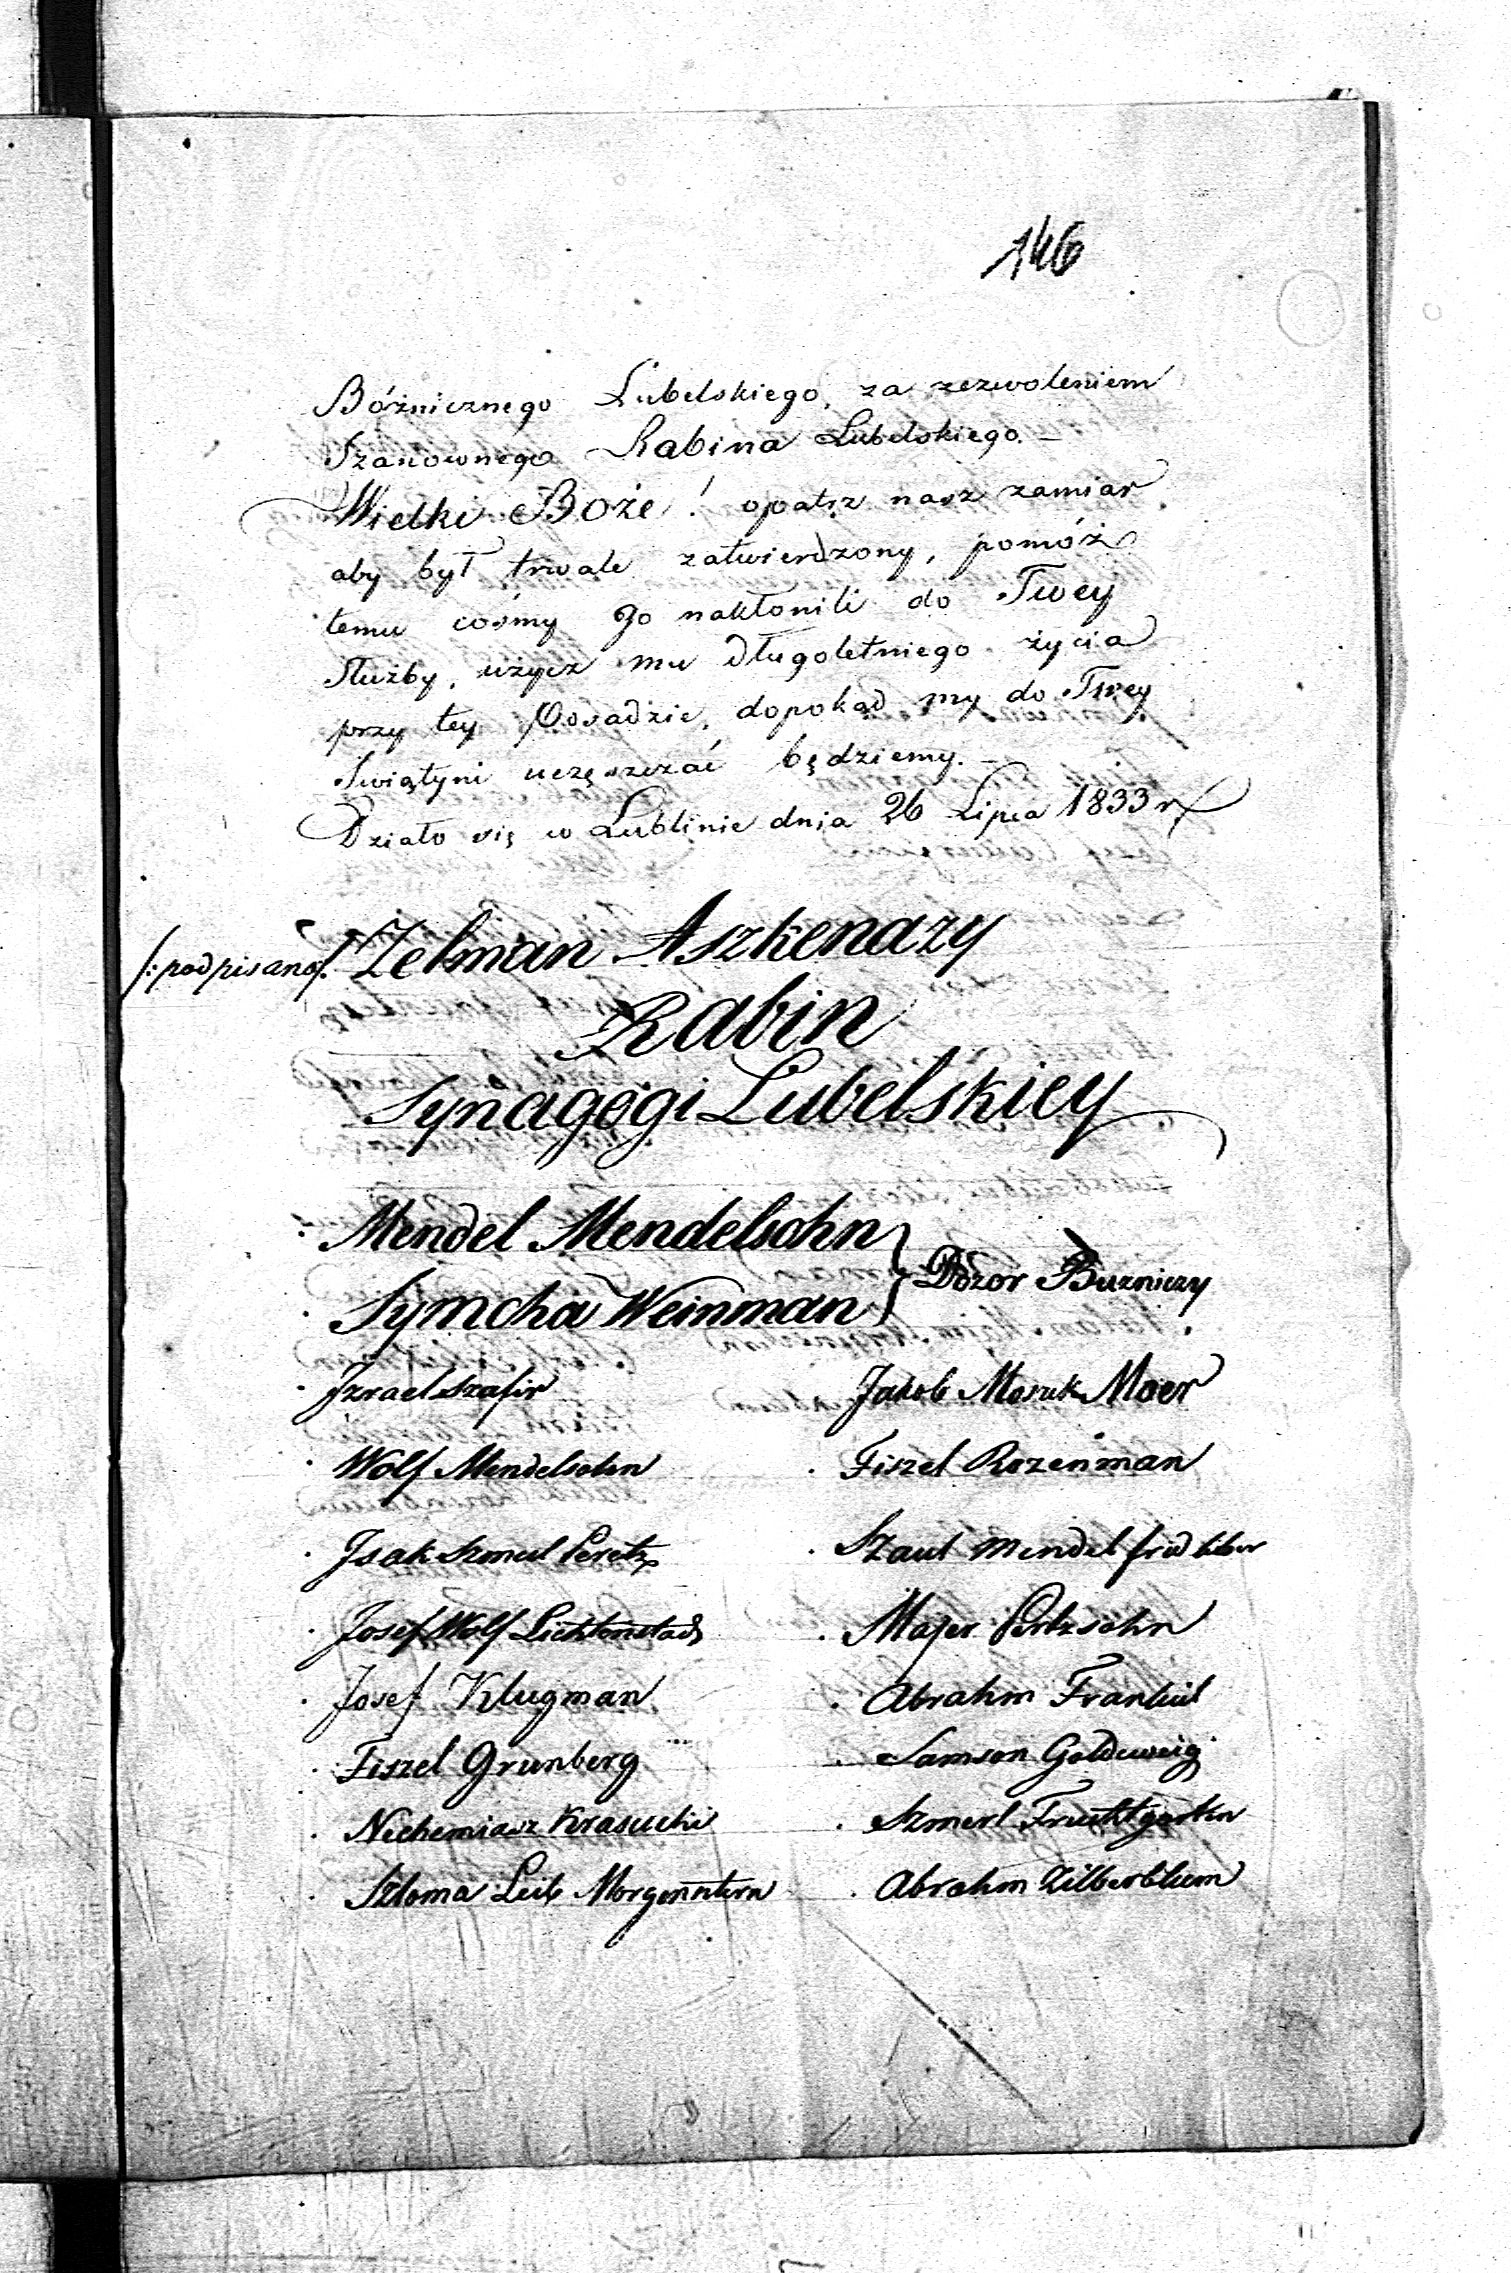 146
Bóżnicznego Lubelskiego, za zezwoleniem
Szanownego Rabina Lubelskiego. –
Wielki Boże! opatrz nasz zamiar
aby był trwale zatwierdzony, pomóż
temu cośmy go nakłonili do Twey
służby, użycz mu długoletniego życia
przy tey Posadzie, dopokąd my do Twey
Świątyni uczęszczać będziemy. –
Działo się w Lublinie dnia 26 Lipca 1833 r
/: podpisano/: Zelman Aszkenazy
Rabin
Synagogi Lubelskiey
Mendel Mendelsohn
Symcha Weinman } Dozor Buzniczy
Izrael Szafir Jakob Moer
Wolf Mendelsohn Fiszel Rozenman
Isak Szmul Peretz Szaul Mendel
Josef Wolf Lichtenstad Majer Pertzsohn
Josef Klugman Abrahm Frankiel
Fiszel Grunberg Samson Goldcweig
Nechemiasz Krasucki Szmerl Fruchtgarten
Szloma Leib Morgensztern Abrahm Zilberblum